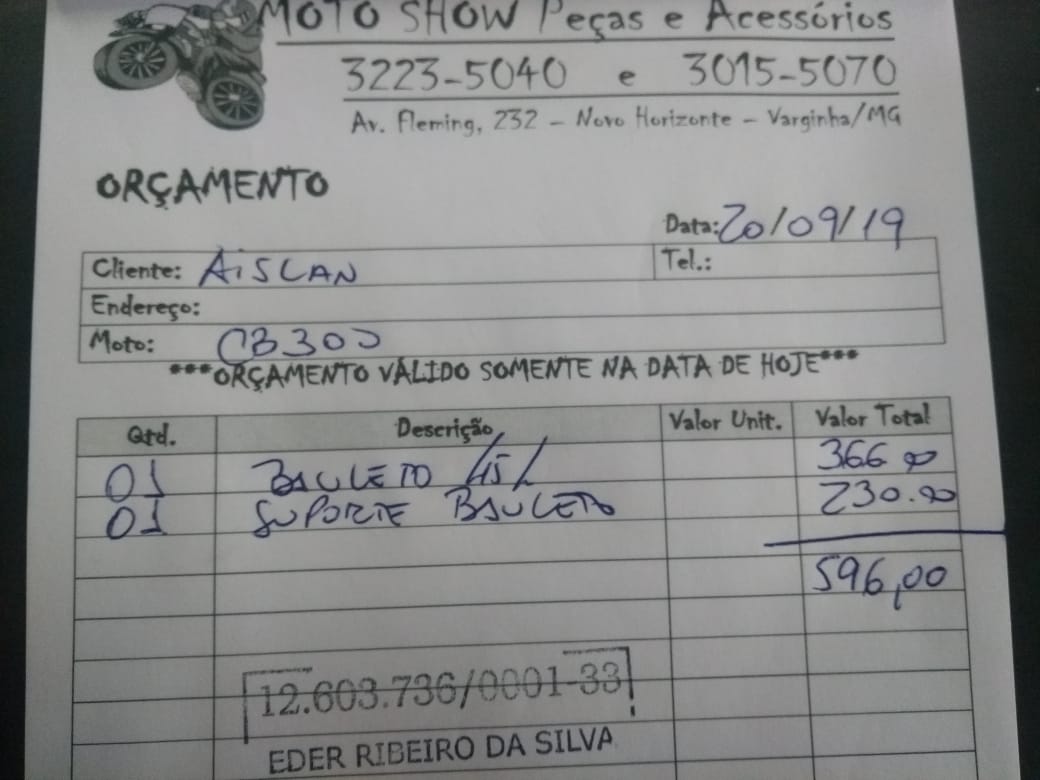 MOTO SHOW Peças e Acessórios
3223-5040 e 3015-5070
Av. Fleming, 232 - Novo Horizonte - Varginha/MG
ORÇAMENTO
Data: 20/09/19
Cliente: AiSLAN Tel.:
Endereço:
Moto: CB300
***ORÇAMENTO VÁLIDO SOMENTE NA DATA DE HOJE***
Qtd. Descrição Valor Unit. Valor Total
01 BAULETO 45L 366 00
01 SUPORTE BAULETO 230.00
596,00
12.603.736/0001-33
EDER RIBEIRO DA SILVA